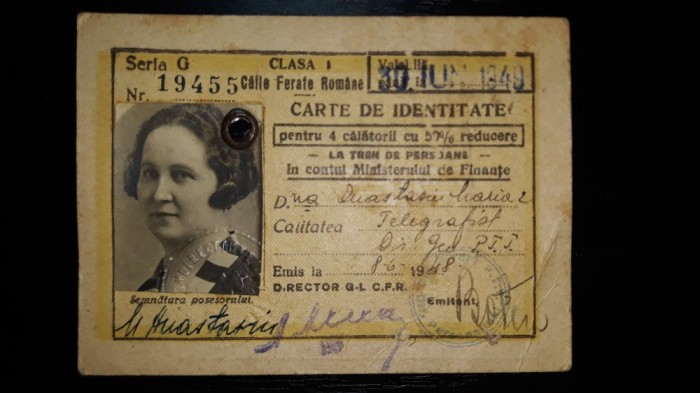 Seria G
Nr. 19455
CLASA I
Căile Ferate Române
30 JUN. 1949
CARTE DE IDENTITATE
pentru 4 călătorii cu 50% reducere
— LA TREN DE PERSOANE —
In contul Ministerului de Finanțe
D.na Anastasiu Maria
Calitatea Telegrafist
Dir. Gen P.T.T.
Emis la 8-6- 1948
DIRECTOR G-L C.F.R.
Emitent,
Semnătura posesorului.
M Anastasiu